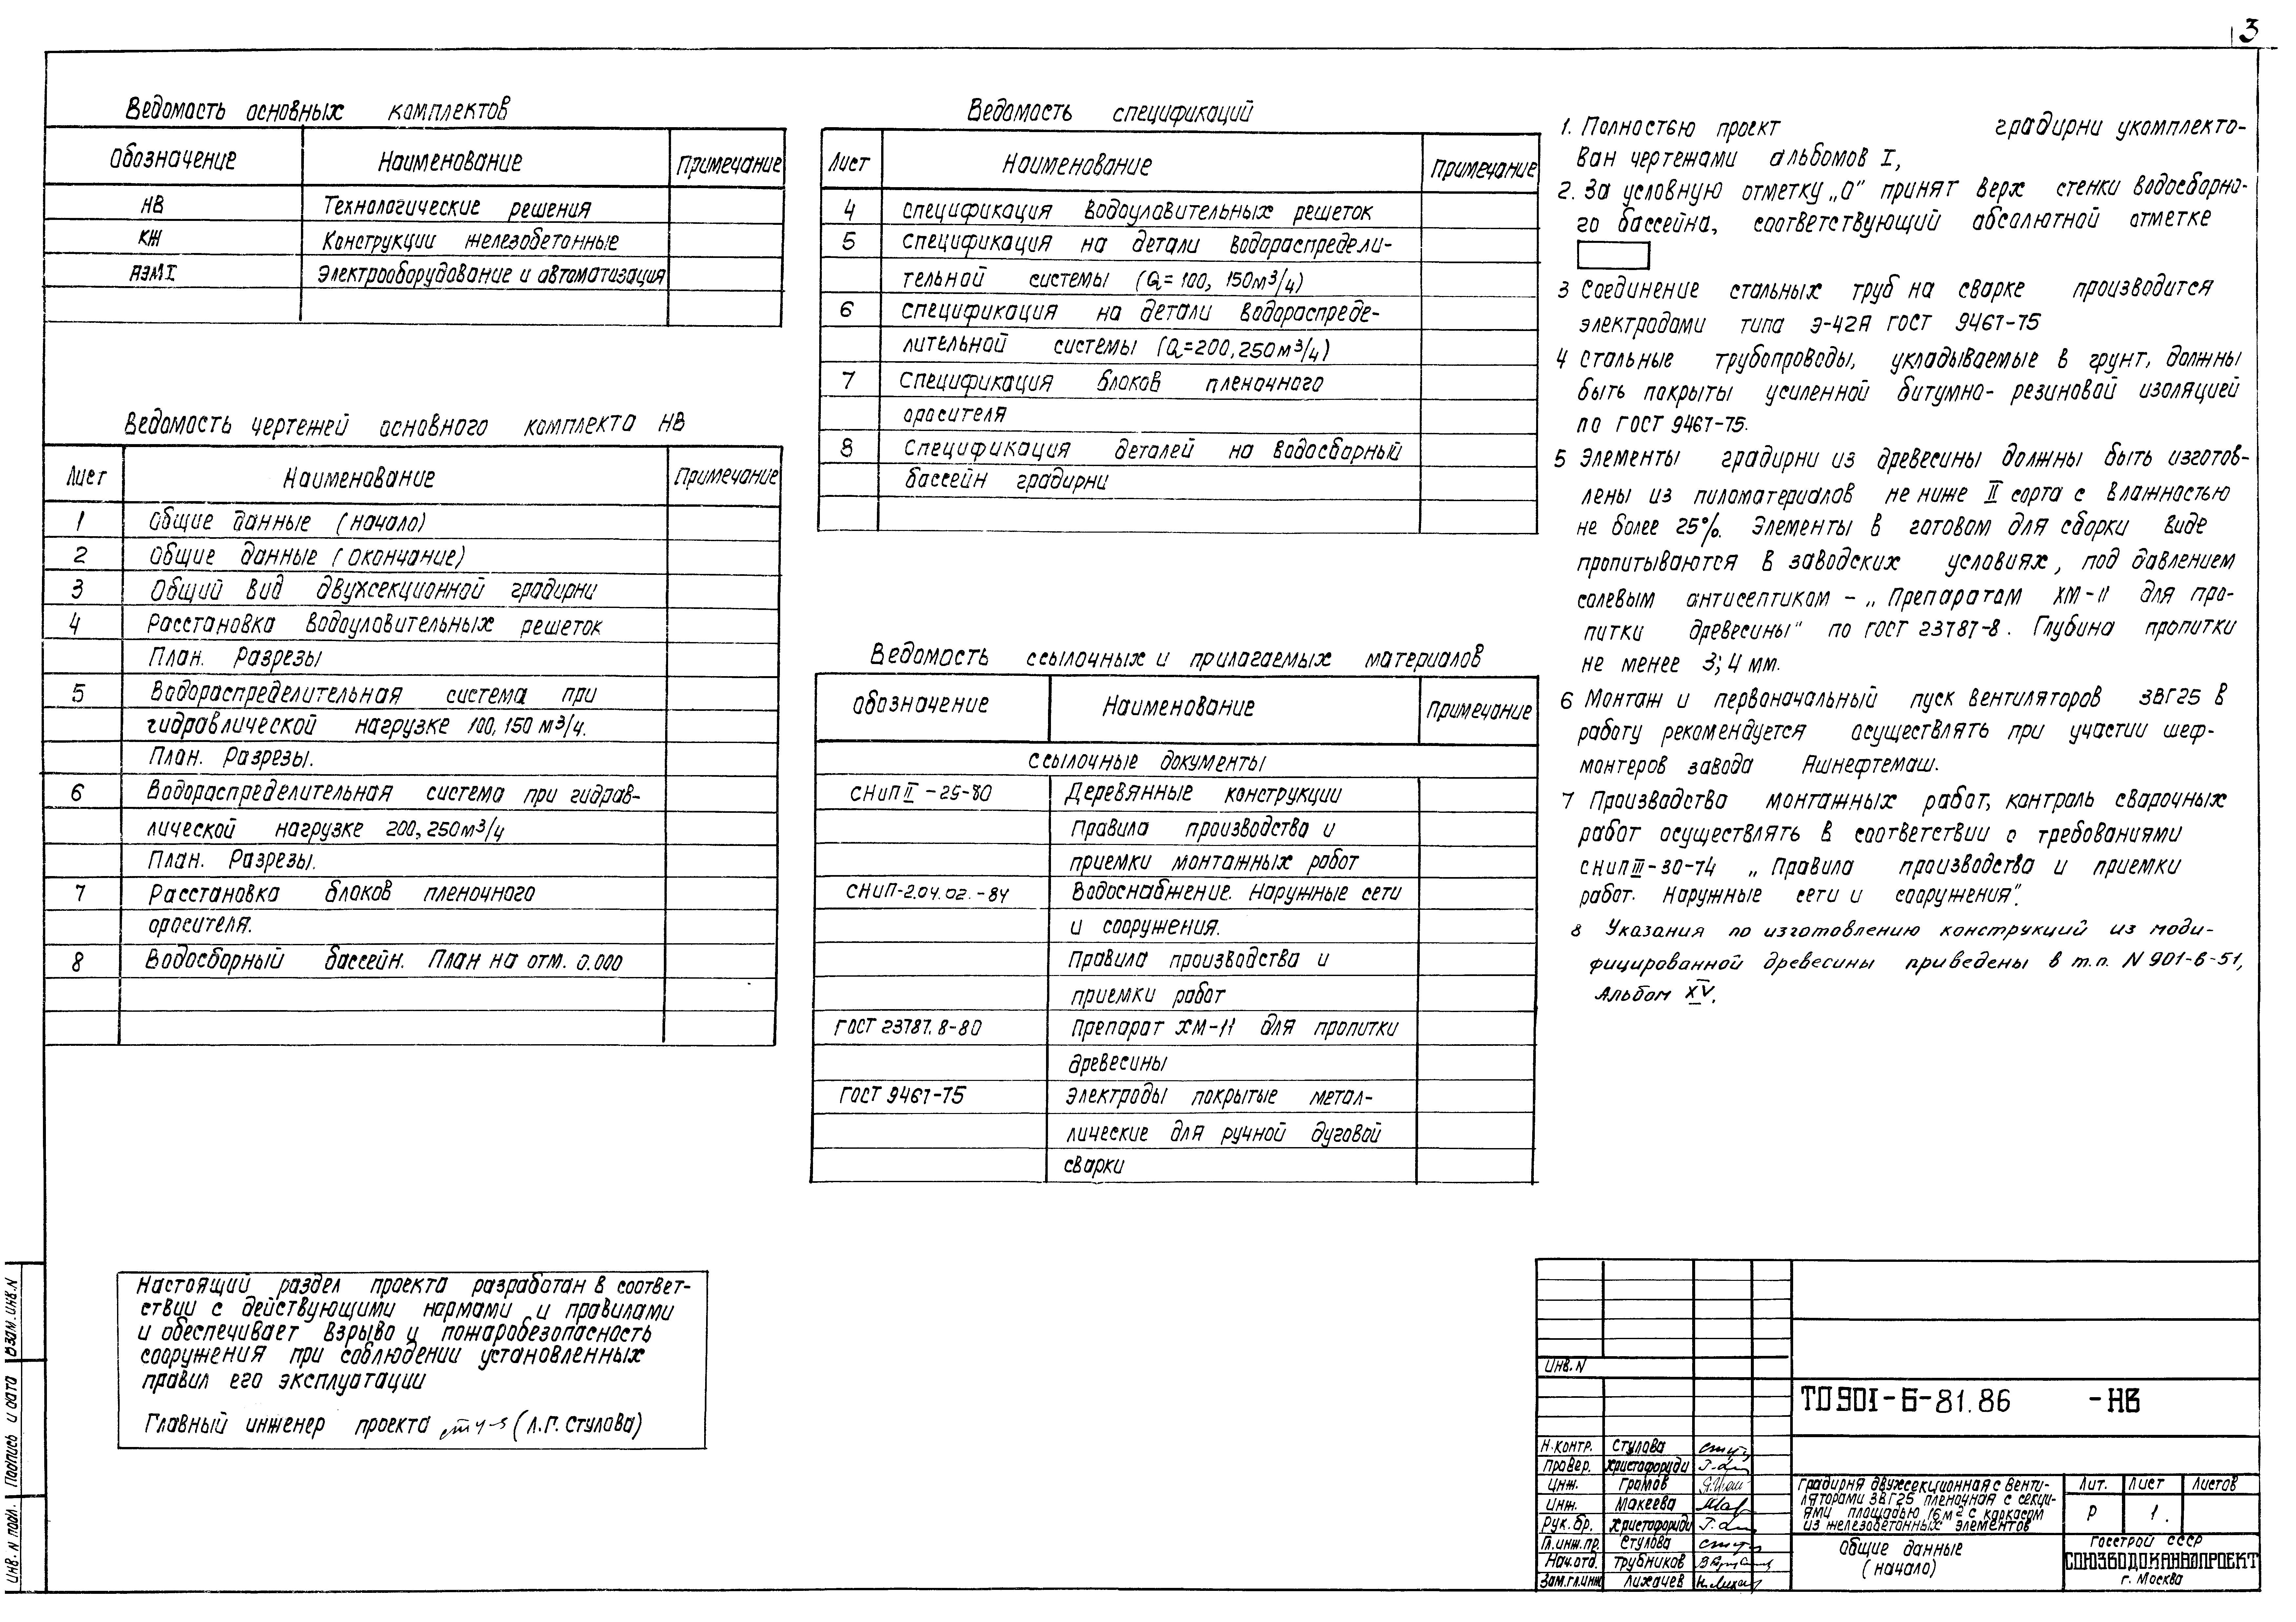 3
Ведомость основных комплектов
Обозначение Наименование Примечание
НВ Технологические решения
КЖ Конструкции железобетонные
АЭМI Электрооборудование и автоматизация
Ведомость чертежей основного комплекта НВ
Лист Наименование Примечание
1 Общие данные (начало)
2 Общие данные (окончание)
3 Общий вид двухсекционной градирни
4 Расстановка водоуловительных решеток
План. Разрезы
5 Водораспределительная система при
гидравлической нагрузке 100, 150 м3/ч.
План. Разрезы.
6 Водораспределительная система при гидрав-
лической нагрузке 200, 250м3/ч
План. Разрезы.
7 Расстановка блоков пленочного
оросителя.
8 Водосборный бассейн. План на отм. 0.000
Настоящий раздел проекта разработан в соответ-
ствии с действующими нормами и правилами
и обеспечивает взрыво и пожаробезопасность
сооружения при соблюдении установленных
правил его эксплуатации
Главный инженер проекта (Л.Г. Стулова)
Ведомость спецификаций
Лист Наименование Примечание
4 Спецификация водоуловительных решеток
5 Спецификация на детали водораспредели-
тельной системы (Q= 100, 150м3/ч)
6 Спецификация на детали водораспреде-
лительной системы (Q=200, 250м3/ч)
7 Спецификация блоков пленочного
оросителя
8 Спецификация деталей на водосборный
бассейн градирни
Ведомость ссылочных и прилагаемых материалов
Обозначение Наименование Примечание
Ссылочные документы
СНиП II -25-80 Деревянные конструкции
Правила производства и
приемки монтажных работ
СНиП-2.04.02.-84 Водоснабжение. Наружные сети
и сооружения.
Правила производства и
приемки работ
ГОСТ 23787.8-80 Препарат ХМ-11 для пропитки
древесины
ГОСТ 9467-75 Электроды покрытые метал-
лические для ручной дуговой
сварки
1. Полностью проект градирни укомплекто-
ван чертежами альбомов I,
2. За условную отметку „0" принят верх стенки водосборно-
го бассейна, соответствующий абсолютной отметке
3 Соединение стальных труб на сварке производится
электродами типа Э-42А ГОСТ 9467-75
4 Стальные трубопроводы, укладываемые в грунт, должны
быть покрыты усиленной битумно-резиновой изоляцией
по ГОСТ 9467-75.
5 Элементы градирни из древесины должны быть изготов-
лены из пиломатериалов не ниже II сорта с влажностью
не более 25%. Элементы в готовом для сборки виде
пропитываются в заводских условиях, под давлением
солевым антисептиком - „Препаратом ХМ-11 для про-
питки древесины" по ГОСТ 23787-8. Глубина пропитки
не менее 3; 4 мм.
6 Монтаж и первоначальный пуск вентиляторов 3ВГ25 в
работу рекомендуется осуществлять при участии шеф-
монтеров завода Яшнефтемаш.
7 Производства монтажных работ, контроль сварочных
работ осуществлять в соответствии с требованиями
СНиП III-30-74 „Правила производства и приемки
работ. Наружные сети и сооружения".
8 Указания по изготовлению конструкций из моди-
фицированной древесины приведены в т.п. N 901-6-51,
Альбом XV.
Инв. N
ТП 901-6-81.86 -НВ
Н.контр. Стулова
Провер. Христофориди
Инж. Громов
Инж. Макеева
Рук. бр. Христофориди
Гл.инж.пр. Стулова
Нач.отд. Трубников
Зам.гл.инж Лихачев
Градирня двухсекционная с венти-
ляторами 3ВГ25 пленочная с секци-
ями площадью 16м2 с каркасом
из железобетонных элементов
Лит. Лист Листов
Р 1.
Общие данные
(начало)
Госстрой СССР
СОЮЗВОДОКАНАЛПРОЕКТ
г. Москва
Инв. N подл. Подпись и дата Взам. инв. N